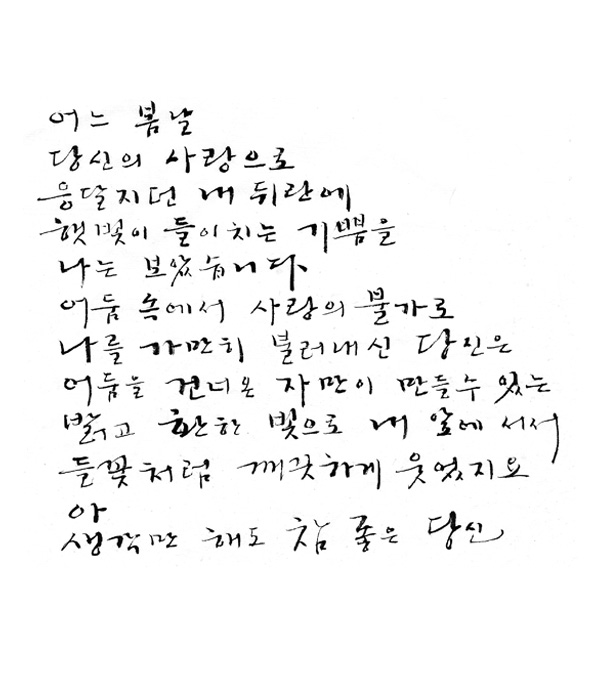 어느 봄날
당신의 사랑으로
응달지던 내 뒤란에
햇빛이 들이치는 기쁨을
나는 보았습니다.
어둠 속에서 사랑의 불가로
나를 가만히 불러내신 당신은
어둠을 건너온 자만이 만들수 있는
밝고 환한 빛으로 내 앞에 서서
들꽃처럼 깨끗하게 웃었지요
아
생각만 해도 참 좋은 당신